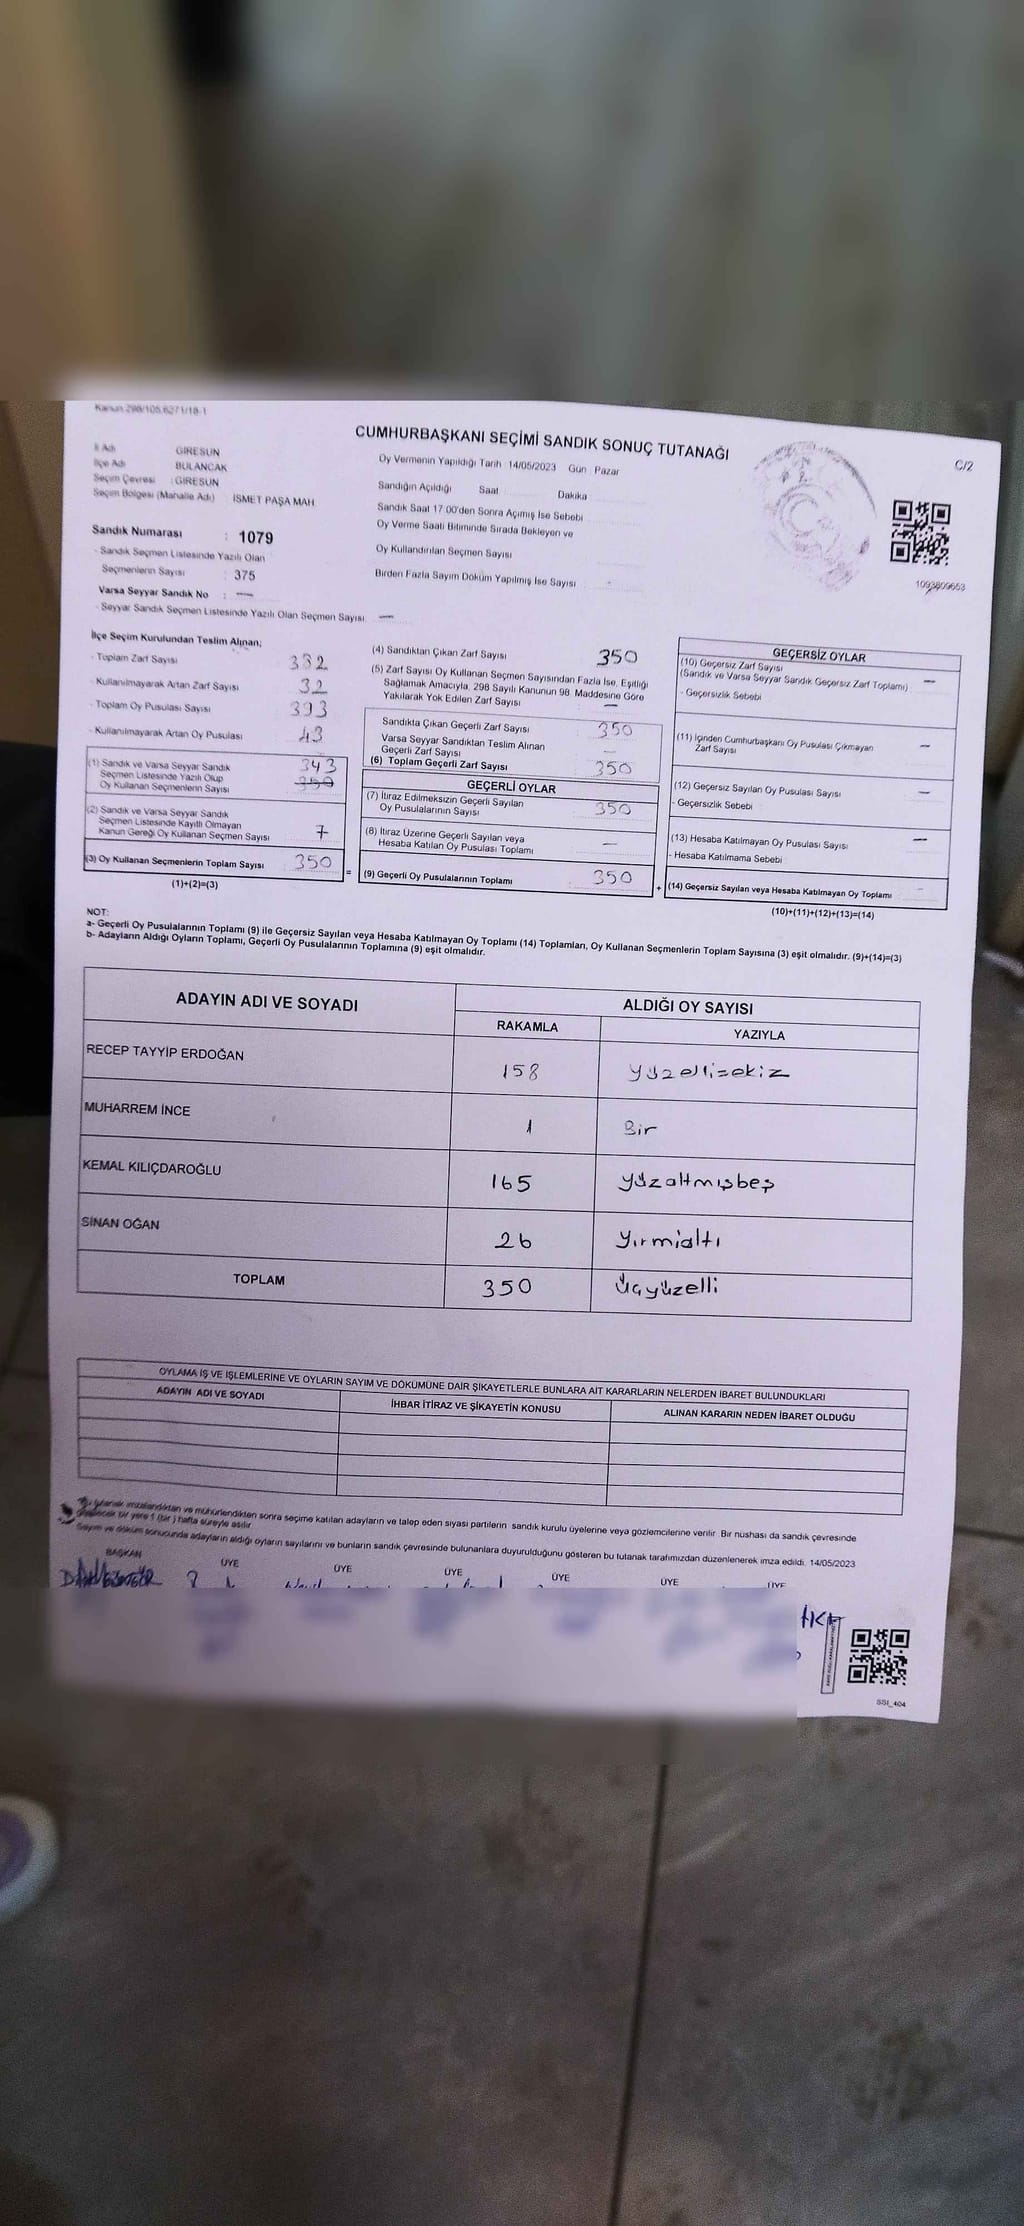 Kanun 298/105.6271/18-1
CUMHURBAŞKANI SEÇİMİ SANDIK SONUÇ TUTANAĞI
C/2
İl Adı GİRESUN
İlçe Adı BULANCAK
Seçim Çevresi : GİRESUN
Seçim Bölgesi (Mahalle Adı) : İSMET PAŞA MAH
Sandık Numarası : 1079
- Sandık Seçmen Listesinde Yazılı Olan
Seçmenlerin Sayısı : 375
Varsa Seyyar Sandık No : —
- Seyyar Sandık Seçmen Listesinde Yazılı Olan Seçmen Sayısı —
Oy Vermenin Yapıldığı Tarih 14/05/2023 Gün : Pazar
Sandığın Açıldığı Saat Dakika
Sandık Saat 17.00'den Sonra Açımış İse Sebebi
Oy Verme Saati Bitiminde Sırada Bekleyen ve
Oy Kullandırılan Seçmen Sayısı
Birden Fazla Sayım Döküm Yapılmış İse Sayısı -
1093809653
İlçe Seçim Kurulundan Teslim Alınan;
- Toplam Zarf Sayısı 382
- Kullanılmayarak Artan Zarf Sayısı 32
- Toplam Oy Pusulası Sayısı 393
- Kullanılmayarak Artan Oy Pusulası 43
(1) Sandık ve Varsa Seyyar Sandık 343
Seçmen Listesinde Yazılı Olup 350
Oy Kullanan Seçmenlerin Sayısı
(2) Sandık ve Varsa Seyyar Sandık
Seçmen Listesinde Kayıtlı Olmayan
Kanun Gereği Oy Kullanan Seçmen Sayısı 7
(3) Oy Kullanan Seçmenlerin Toplam Sayısı 350
(1)+(2)=(3)
=
(4) Sandıktan Çıkan Zarf Sayısı 350
(5) Zarf Sayısı Oy Kullanan Seçmen Sayısından Fazla İse, Eşitliği
Sağlamak Amacıyla, 298 Sayılı Kanunun 98. Maddesine Göre
Yakılarak Yok Edilen Zarf Sayısı —
Sandıkta Çıkan Geçerli Zarf Sayısı 350
Varsa Seyyar Sandıktan Teslim Alınan
Geçerli Zarf Sayısı —
(6) Toplam Geçerli Zarf Sayısı 350
GEÇERLİ OYLAR
(7) İtiraz Edilmeksizin Geçerli Sayılan
Oy Pusulalarının Sayısı 350
(8) İtiraz Üzerine Geçerli Sayılan veya
Hesaba Katılan Oy Pusulası Toplamı —
(9) Geçerli Oy Pusulalarının Toplamı 350
+
GEÇERSİZ OYLAR
(10) Geçersiz Zarf Sayısı
(Sandık ve Varsa Seyyar Sandık Geçersiz Zarf Toplamı) —
- Geçersizlik Sebebi
(11) İçinden Cumhurbaşkanı Oy Pusulası Çıkmayan
Zarf Sayısı —
(12) Geçersiz Sayılan Oy Pusulası Sayısı —
- Geçersizlik Sebebi
(13) Hesaba Katılmayan Oy Pusulası Sayısı —
- Hesaba Katılmama Sebebi
(14) Geçersiz Sayılan veya Hesaba Katılmayan Oy Toplamı -
(10)+(11)+(12)+(13)=(14)
NOT:
a- Geçerli Oy Pusulalarının Toplamı (9) ile Geçersiz Sayılan veya Hesaba Katılmayan Oy Toplamı (14) Toplamları, Oy Kullanan Seçmenlerin Toplam Sayısına (3) eşit olmalıdır. (9)+(14)=(3)
b- Adayların Aldığı Oyların Toplamı, Geçerli Oy Pusulalarının Toplamına (9) eşit olmalıdır.
ADAYIN ADI VE SOYADI
ALDIĞI OY SAYISI
RAKAMLA YAZIYLA
RECEP TAYYİP ERDOĞAN 158 yüzellisekiz
MUHARREM İNCE 1 Bir
KEMAL KILIÇDAROĞLU 165 yüzaltmışbeş
SİNAN OĞAN 26 Yirmialtı
TOPLAM 350 Üçyüzelli
OYLAMA İŞ VE İŞLEMLERİNE VE OYLARIN SAYIM VE DÖKÜMÜNE DAİR ŞİKAYETLERLE BUNLARA AİT KARARLARIN NELERDEN İBARET BULUNDUKLARI
ADAYIN ADI VE SOYADI İHBAR İTİRAZ VE ŞİKAYETİN KONUSU ALINAN KARARIN NEDEN İBARET OLDUĞU
tutanak imzalandıktan ve mühürlendikten sonra seçime katılan adayların ve talep eden siyasi partilerin sandık kurulu üyelerine veya gözlemcilerine verilir. Bir nüshası da sandık çevresinde
bir yere 1 (bir ) hafta süreyle asılır.
Sayım ve döküm sonucunda adayların aldığı oyların sayılarını ve bunların sandık çevresinde bulunanlara duyurulduğunu gösteren bu tutanak tarafımızdan düzenlenerek imza edildi. 14/05/2023
BAŞKAN ÜYE ÜYE ÜYE ÜYE ÜYE ÜYE
SSI_404